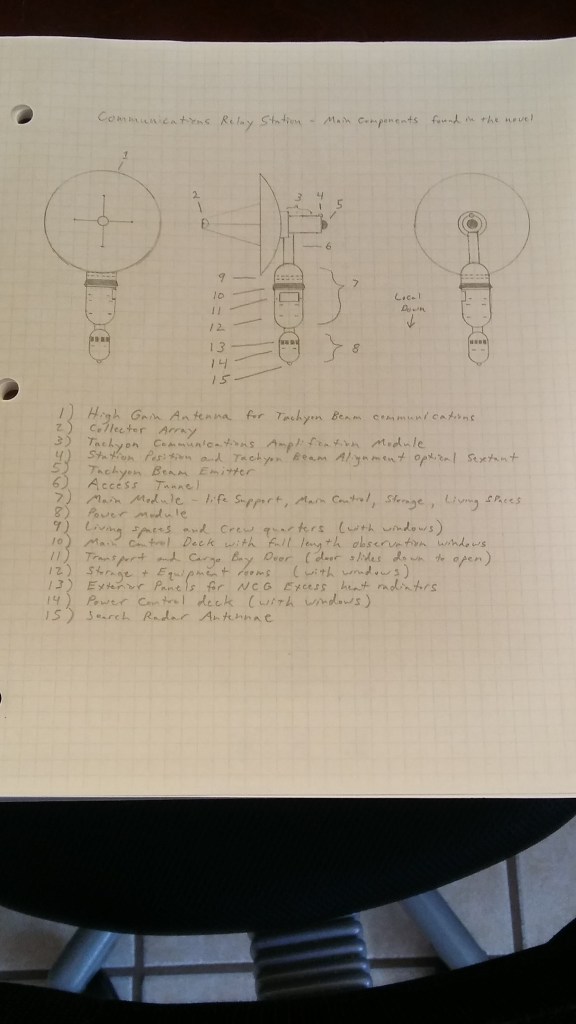 Communications Relay Station - Main Components found in the novel
1
2
3
4
5
6
9
10
11
12
7
13
14
15
8
Local
Down
1) High Gain Antenna for Tachyon Beam communications
2) Collector Array
3) Tachyon Communications Amplification Module
4) Station Position and Tachyon Beam Alignment optical sextant
5) Tachyon Beam Emitter
6) Access Tunnel
7) Main Module - life Support, Main Control, Storage, Living Spaces
8) Power Module
9) Living spaces and Crew quarters (with windows)
10) Main Control Deck with full length observation windows
11) Transport and Cargo Bay Door (door slides down to open)
12) Storage + Equipment rooms (with windows)
13) Exterior Panels for NCG Excess heat radiators
14) Power Control deck (with windows)
15) Search Radar Antennae